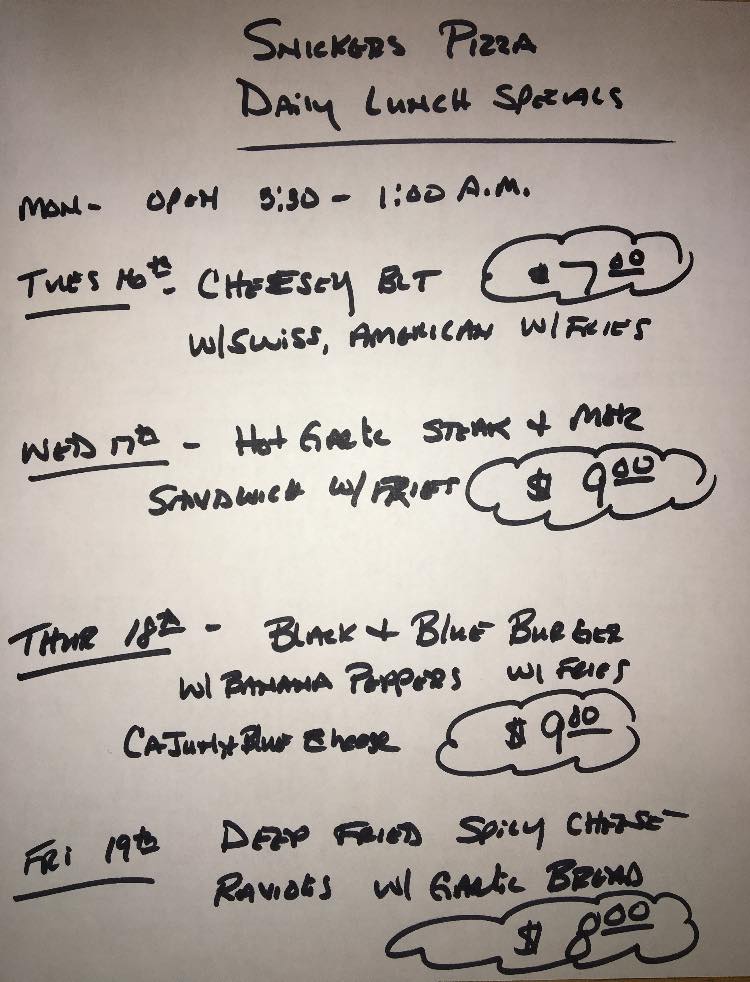 SNICKERS PIZZA
DAILY LUNCH SPECIALS
MON- OPEN 3:30 - 1:00 A.M.
TUES 16th - CHEESEY BLT $7.00
W/SWISS, AMERICAN W/FRIES
WED 17th - Hot GARLIC STEAK + MOZ
SANDWICH W/FRIES $9.00
THUR 18th - BLACK + BLUE BURGER
W/ BANANA PEPPERS W/ FRIES
CAJUN + BLUE Cheese $9.00
FRI 19th DEEP FRIED SPICY CHEESE
RAVIOLIS W/ GARLIC BREAD
$8.00